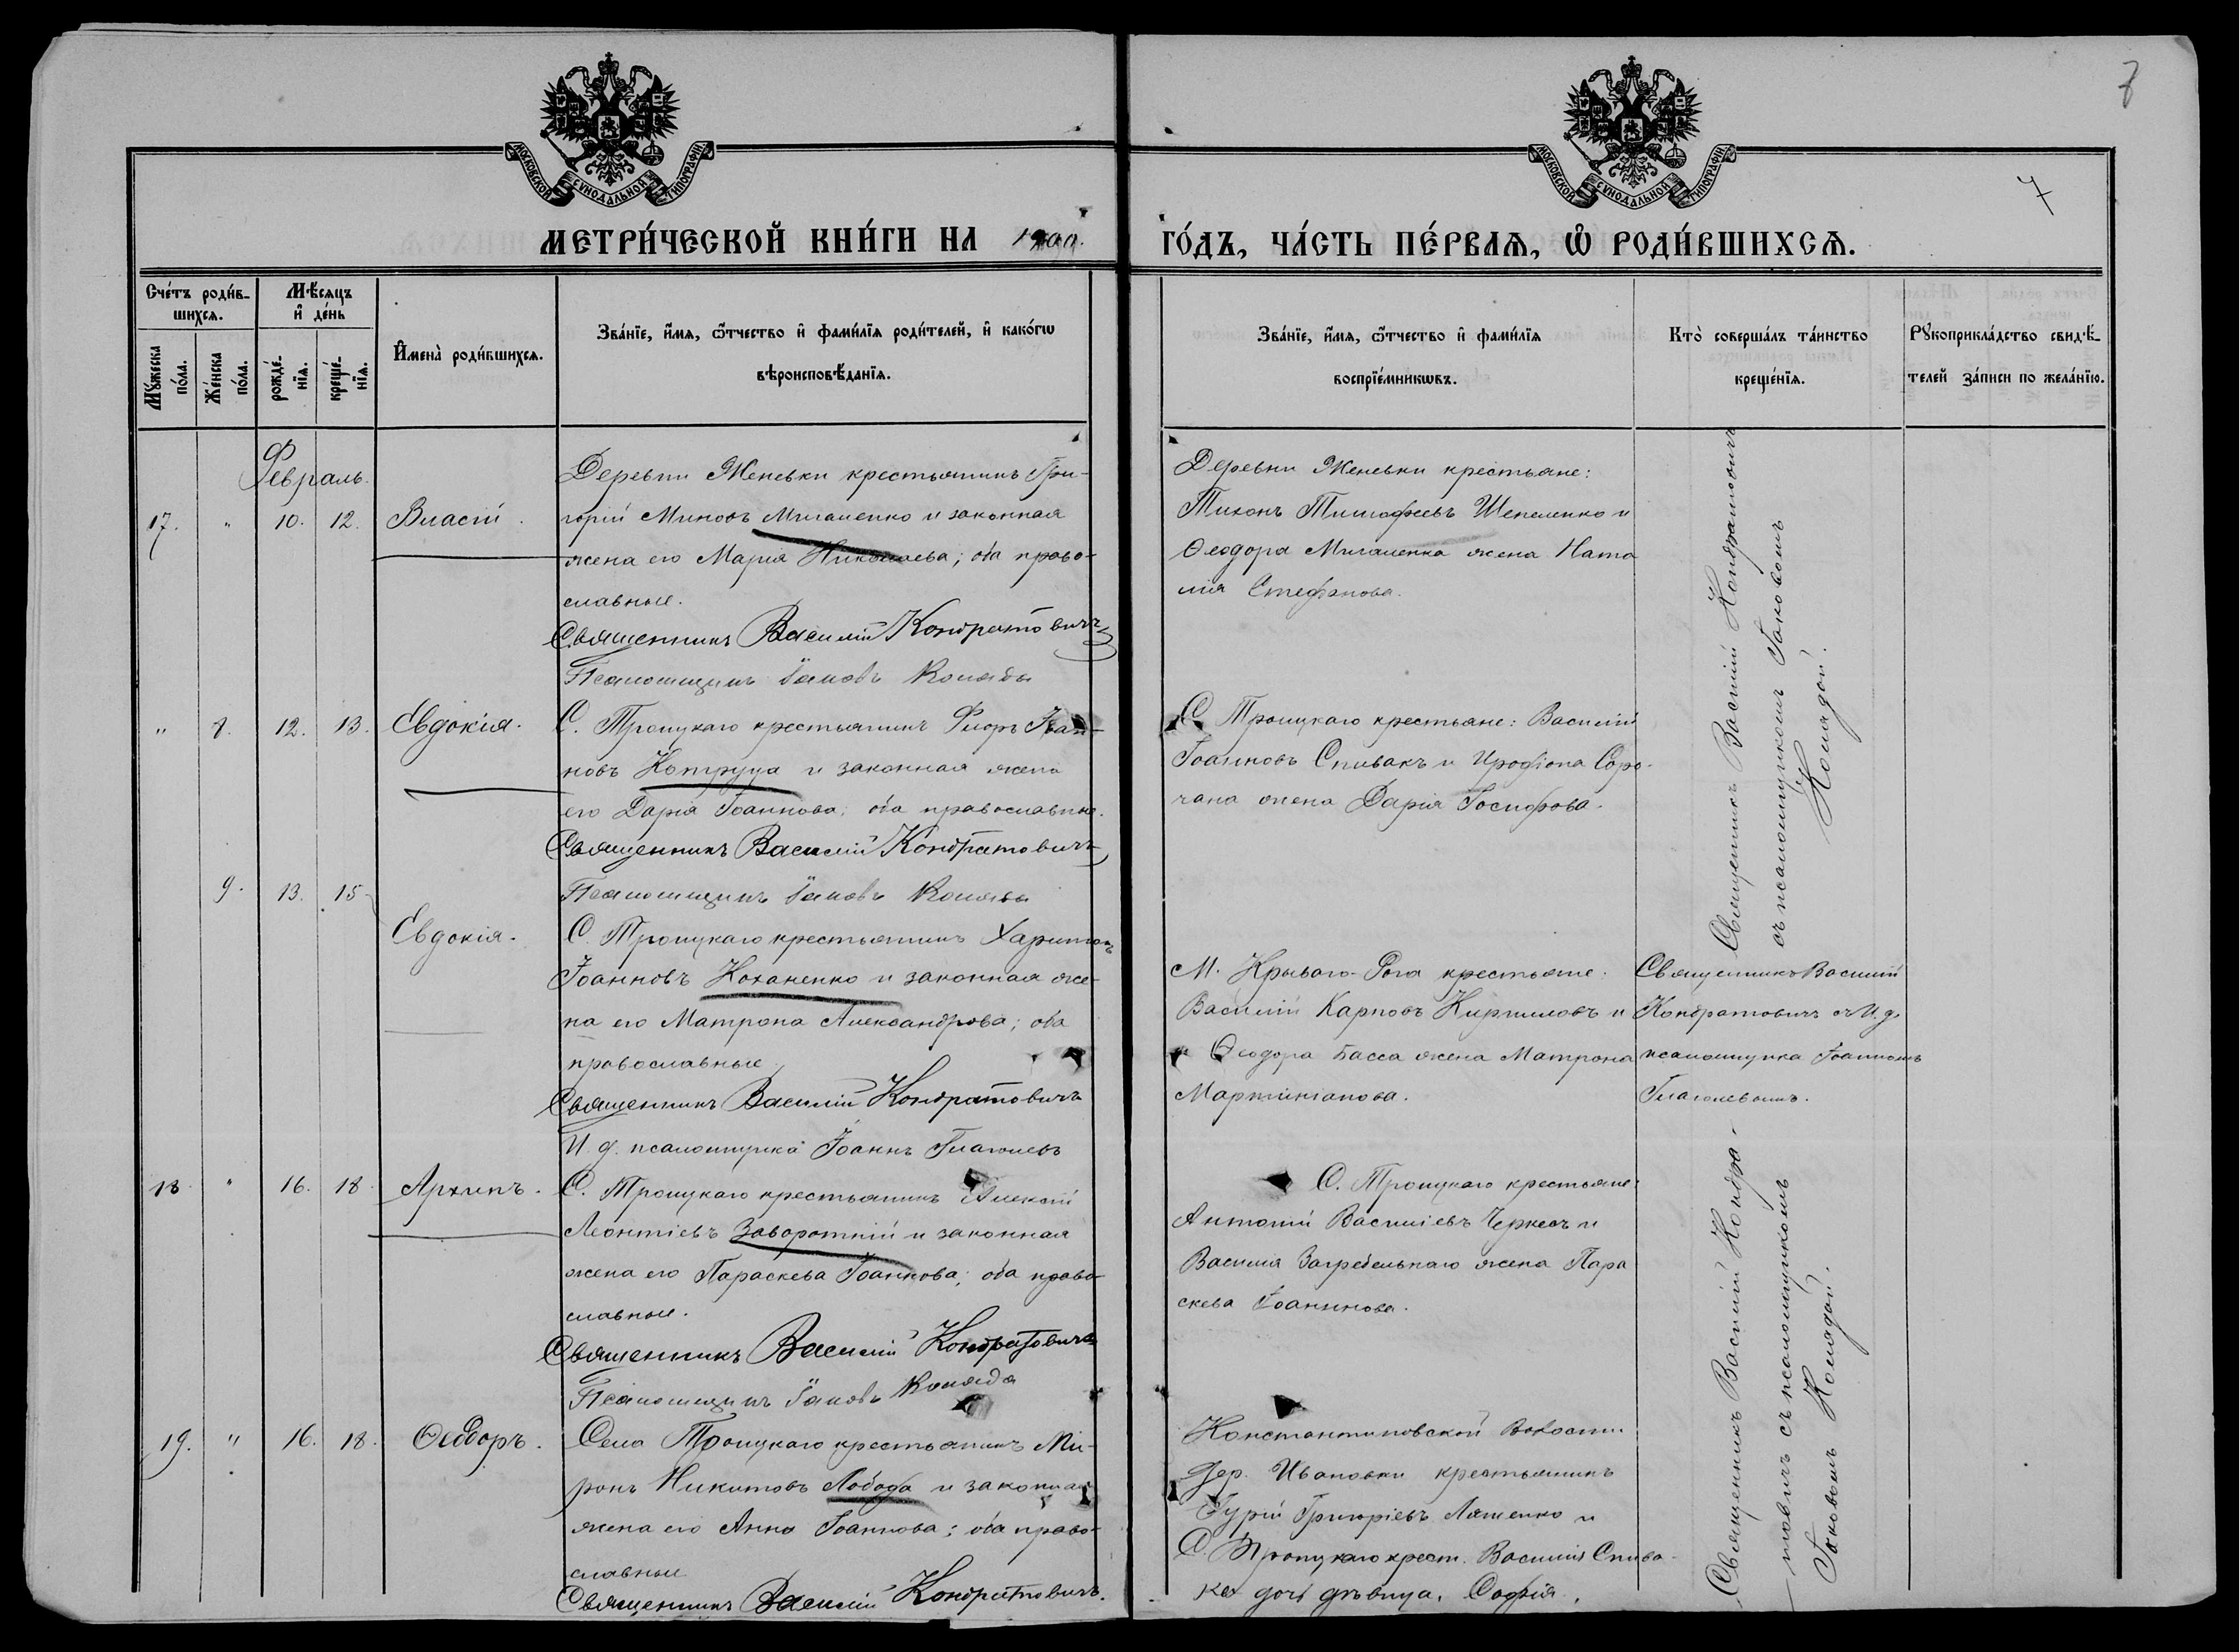 7
7
МОСКОВСКОЙ СѴНОДАЛЬНОЙ ТИПОГРАФІИ
МОСКОВСКОЙ СѴНОДАЛЬНОЙ ТИПОГРАФІИ
МЕТРИ́ЧЕСКОЙ КНИ́ГИ НА 1900.
ГО́ДЪ, ЧА́СТЬ ПЕ́РВАѦ, Ѡ РОДИ́ВШИХСѦ.
Сче́тъ роди́в-
шихсѧ.
Мѣ́сѧцъ
и҆ де́нь
Мꙋ́жеска
по́ла.
Же́нска
по́ла.
рожде́-
нїѧ.
креще́-
нїѧ.
И҆мена̀ роди́вшихсѧ.
Зва́нїе, и҆́мѧ, ѻ҆́тчество и҆ фами́лїѧ роди́телей, и҆ како́гѡ
вѣроисповѣ́данїѧ.
Зва́нїе, и҆́мѧ, ѻ҆́тчество и҆ фами́лїѧ
воспрїе́мникѡвъ.
Кто̀ соверша́лъ та́инство
креще́нїѧ.
Рꙋкоприкла́дство свидѣ́-
телей за́писи по жела́нїю.
Февраль.
17. " 10. 12. Власій.
Деревни Женевки крестьянинъ Гри-
горій Миновъ Мигаленко и законная
жена его Марія Николаева; оба право-
славные.
Священникъ Василій Кондратовичъ
Псаломщикъ Іаковъ Коляда
Деревни Женевки крестьяне:
Тихонъ Тимофеевъ Шепеленко и
Ѳеодора Мигаленка жена Ната
лія Стефанова.
Священникъ Василій Кондратовичъ
съ псаломщикомъ Іаковомъ
Колядой.
" 8. 12. 13. Евдокія.
С. Троицкаго крестьянинъ Флоръ Іоан-
новъ Котруца и законная жена
его Дарія Іоаннова; оба православные.
Священникъ Василій Кондратовичъ
Псаломщикъ Іаковъ Коляда
С. Троицкаго крестьяне: Василій
Іоанновъ Спивакъ и Иродіона Соро-
чана жена Дарія Іосифова.
9. 13. 15. Евдокія.
С. Троицкаго крестьянинъ Харитонъ
Іоанновъ Коханенко и законная же-
на его Матрона Александрова; оба
православные
Священникъ Василій Кондратовичъ
И. д. псаломщика Іоаннъ Глаголевъ
М. Крываго-Рога крестьяне:
Василій Карповъ Кирилловъ и
Ѳеодора Басса жена Матрона
Мартиніанова.
Священникъ Василій
Кондратовичъ съ И. д.
псаломщика Іоанномъ
Глаголевымъ.
18. " 16. 18. Архипъ.
С. Троицкаго крестьянинъ Алексій
Леонтіевъ Заворотній и законная
жена его Параскева Іоаннова; оба право-
славные.
Священникъ Василій Кондратовичъ
Псаломщикъ Іаковъ Коляда
С. Троицкаго крестьяне:
Антоній Василіевъ Черкесъ и
Василія Загребельнаго жена Пара
скева Іоаннова.
Священникъ Василій Кондра-
товичъ съ псаломщикомъ
Іаковомъ Колядой.
19. " 16. 18. Ѳеодоръ.
Села Троицкаго крестьянинъ Ми-
ронъ Никитовъ Лобода и законная
жена его Анна Іоаннова; оба право-
славные
Священникъ Василій Кондратовичъ.
Константиновской волости
дер. Ивановки крестьянинъ
Гурій Григоріевъ Ляшенко и
С. Троицкаго крест. Василія Спива-
ка дочь дѣвица, Софія.